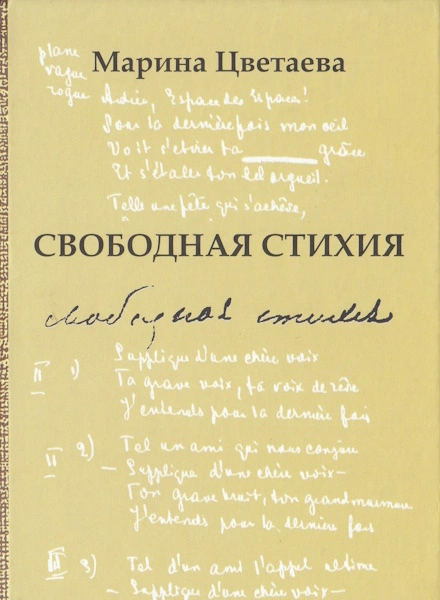 plane
vague
rogue
Марина Цветаева
Adieu, Espace des Espaces!
Pour la dernière fois mon oeil
Voit s'étirer ta grâce
Et s'étaler ton bel orgueil.
Telle une fête qui s'achève,
СВОБОДНАЯ СТИХИЯ
свободная стихия
II 1) Supplique d'une chère voix
Ta grave voix, ta voix de rêve
J'entends pour la dernière fois
II 2) Tel un ami qui nous conjure
— Supplique d'une chère voix —
Ton grave bruit, ton grand murmure
J'entends pour la dernière fois
III 3) Tel d'un ami l'appel ultime
— Supplique d'une chère voix —